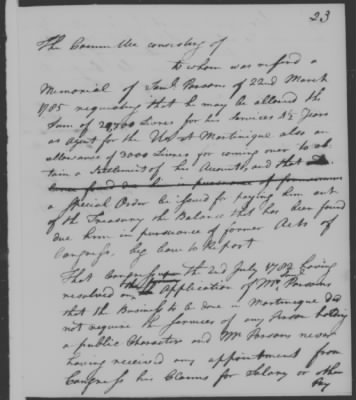 23
The Committee consisting of
to whom was referd a
Memorial of Saml. Parsons of 22nd March
1785 requesting that he may be allowed the
Sum of Livres for his Services Years
as Agent for the U. S. at Martinique also an
allowance of 3000 Livres for coming over to ob-
tain a Settlement of his Accounts, and that
found due him in pursuance of
a Special Order be issued for paying him out
of the Treasury the Balance that has been found
due him in pursuance of former Acts of
Congress, beg leave to Report
That Congress upon the 2nd July 1782 having
resolved on the Application of Mr. Saml. Parsons
that the Business to be done in Martinique did
not require the Services of any Person holding
a public Character and Mr. Parsons never
having received any appointment from
Congress his Claims for Salary or other
Pay